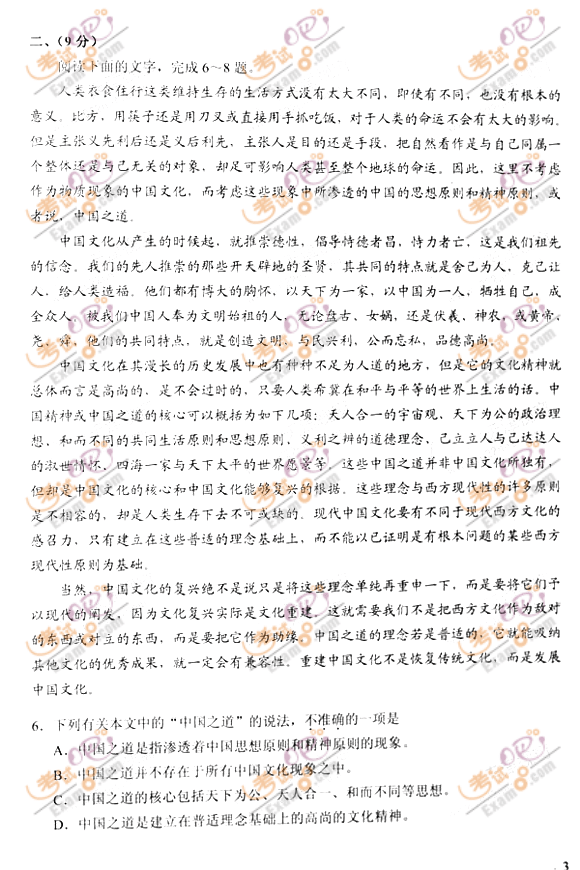 二、（9 分）
阅读下面的文字，完成 6～8 题。
人类衣食住行这类维持生存的生活方式没有太大不同，即使有不同，也没有根本的
意义。比方，用筷子还是用刀叉或直接用手抓吃饭，对于人类的命运不会有太大的影响。
但是主张义先利后还是义后利先，主张人是目的还是手段，把自然看作是与自己同属一
个整体还是与己无关的对象，却足可影响人类甚至整个地球的命运。因此，这里不考虑
作为物质现象的中国文化，而考虑这些现象中所渗透的中国的思想原则和精神原则，或
者说，中国之道。
中国文化从产生的时候起，就推崇德性，倡导恃德者昌，恃力者亡，这是我们祖先
的信念。我们的先人推崇的那些开天辟地的圣贤，其共同的特点就是舍己为人，克己让
人，给人类造福。他们都有博大的胸怀，以天下为一家，以中国为一人，牺牲自己，成
全众人。被我们中国人奉为文明始祖的人，无论盘古、女娲，还是伏羲、神农，或黄帝、
尧、舜，他们的共同特点，就是创造文明，与民兴利，公而忘私，品德高尚。
中国文化在其漫长的历史发展中也有种种不足为人道的地方，但是它的文化精神就
总体而言是高尚的，是不会过时的，只要人类希冀在和平与平等的世界上生活的话。中
国精神或中国之道的核心可以概括为如下几项：天人合一的宇宙观，天下为公的政治理
想，和而不同的共同生活原则和思想原则，义利之辨的道德理念，己立立人与己达达人
的淑世情怀，四海一家与天下太平的世界愿景等。这些中国之道并非中国文化所独有，
但却是中国文化的核心和中国文化能够复兴的根据。这些理念与西方现代性的许多原则
是不相容的，却是人类生存下去不可或缺的。现代中国文化要有不同于现代西方文化的
感召力，只有建立在这些普适的理念基础上，而不能以已证明是有根本问题的某些西方
现代性原则为基础。
当然，中国文化的复兴绝不是说只是将这些理念单纯再重申一下，而是要将它们予
以现代的阐发，因为文化复兴实际是文化重建。这就需要我们不是把西方文化作为敌对
的东西或对立的东西，而是要把它作为助缘。中国之道的理念若是普适的，它就能吸纳
其他文化的优秀成果，就一定会有兼容性。重建中国文化不是恢复传统文化，而是发展
中国文化。
6．下列有关本文中的“中国之道”的说法，不准确的一项是
A．中国之道是指渗透着中国思想原则和精神原则的现象。
B．中国之道并不存在于所有中国文化现象之中。
C．中国之道的核心包括天下为公、天人合一、和而不同等思想。
D．中国之道是建立在普适理念基础上的高尚的文化精神。
3